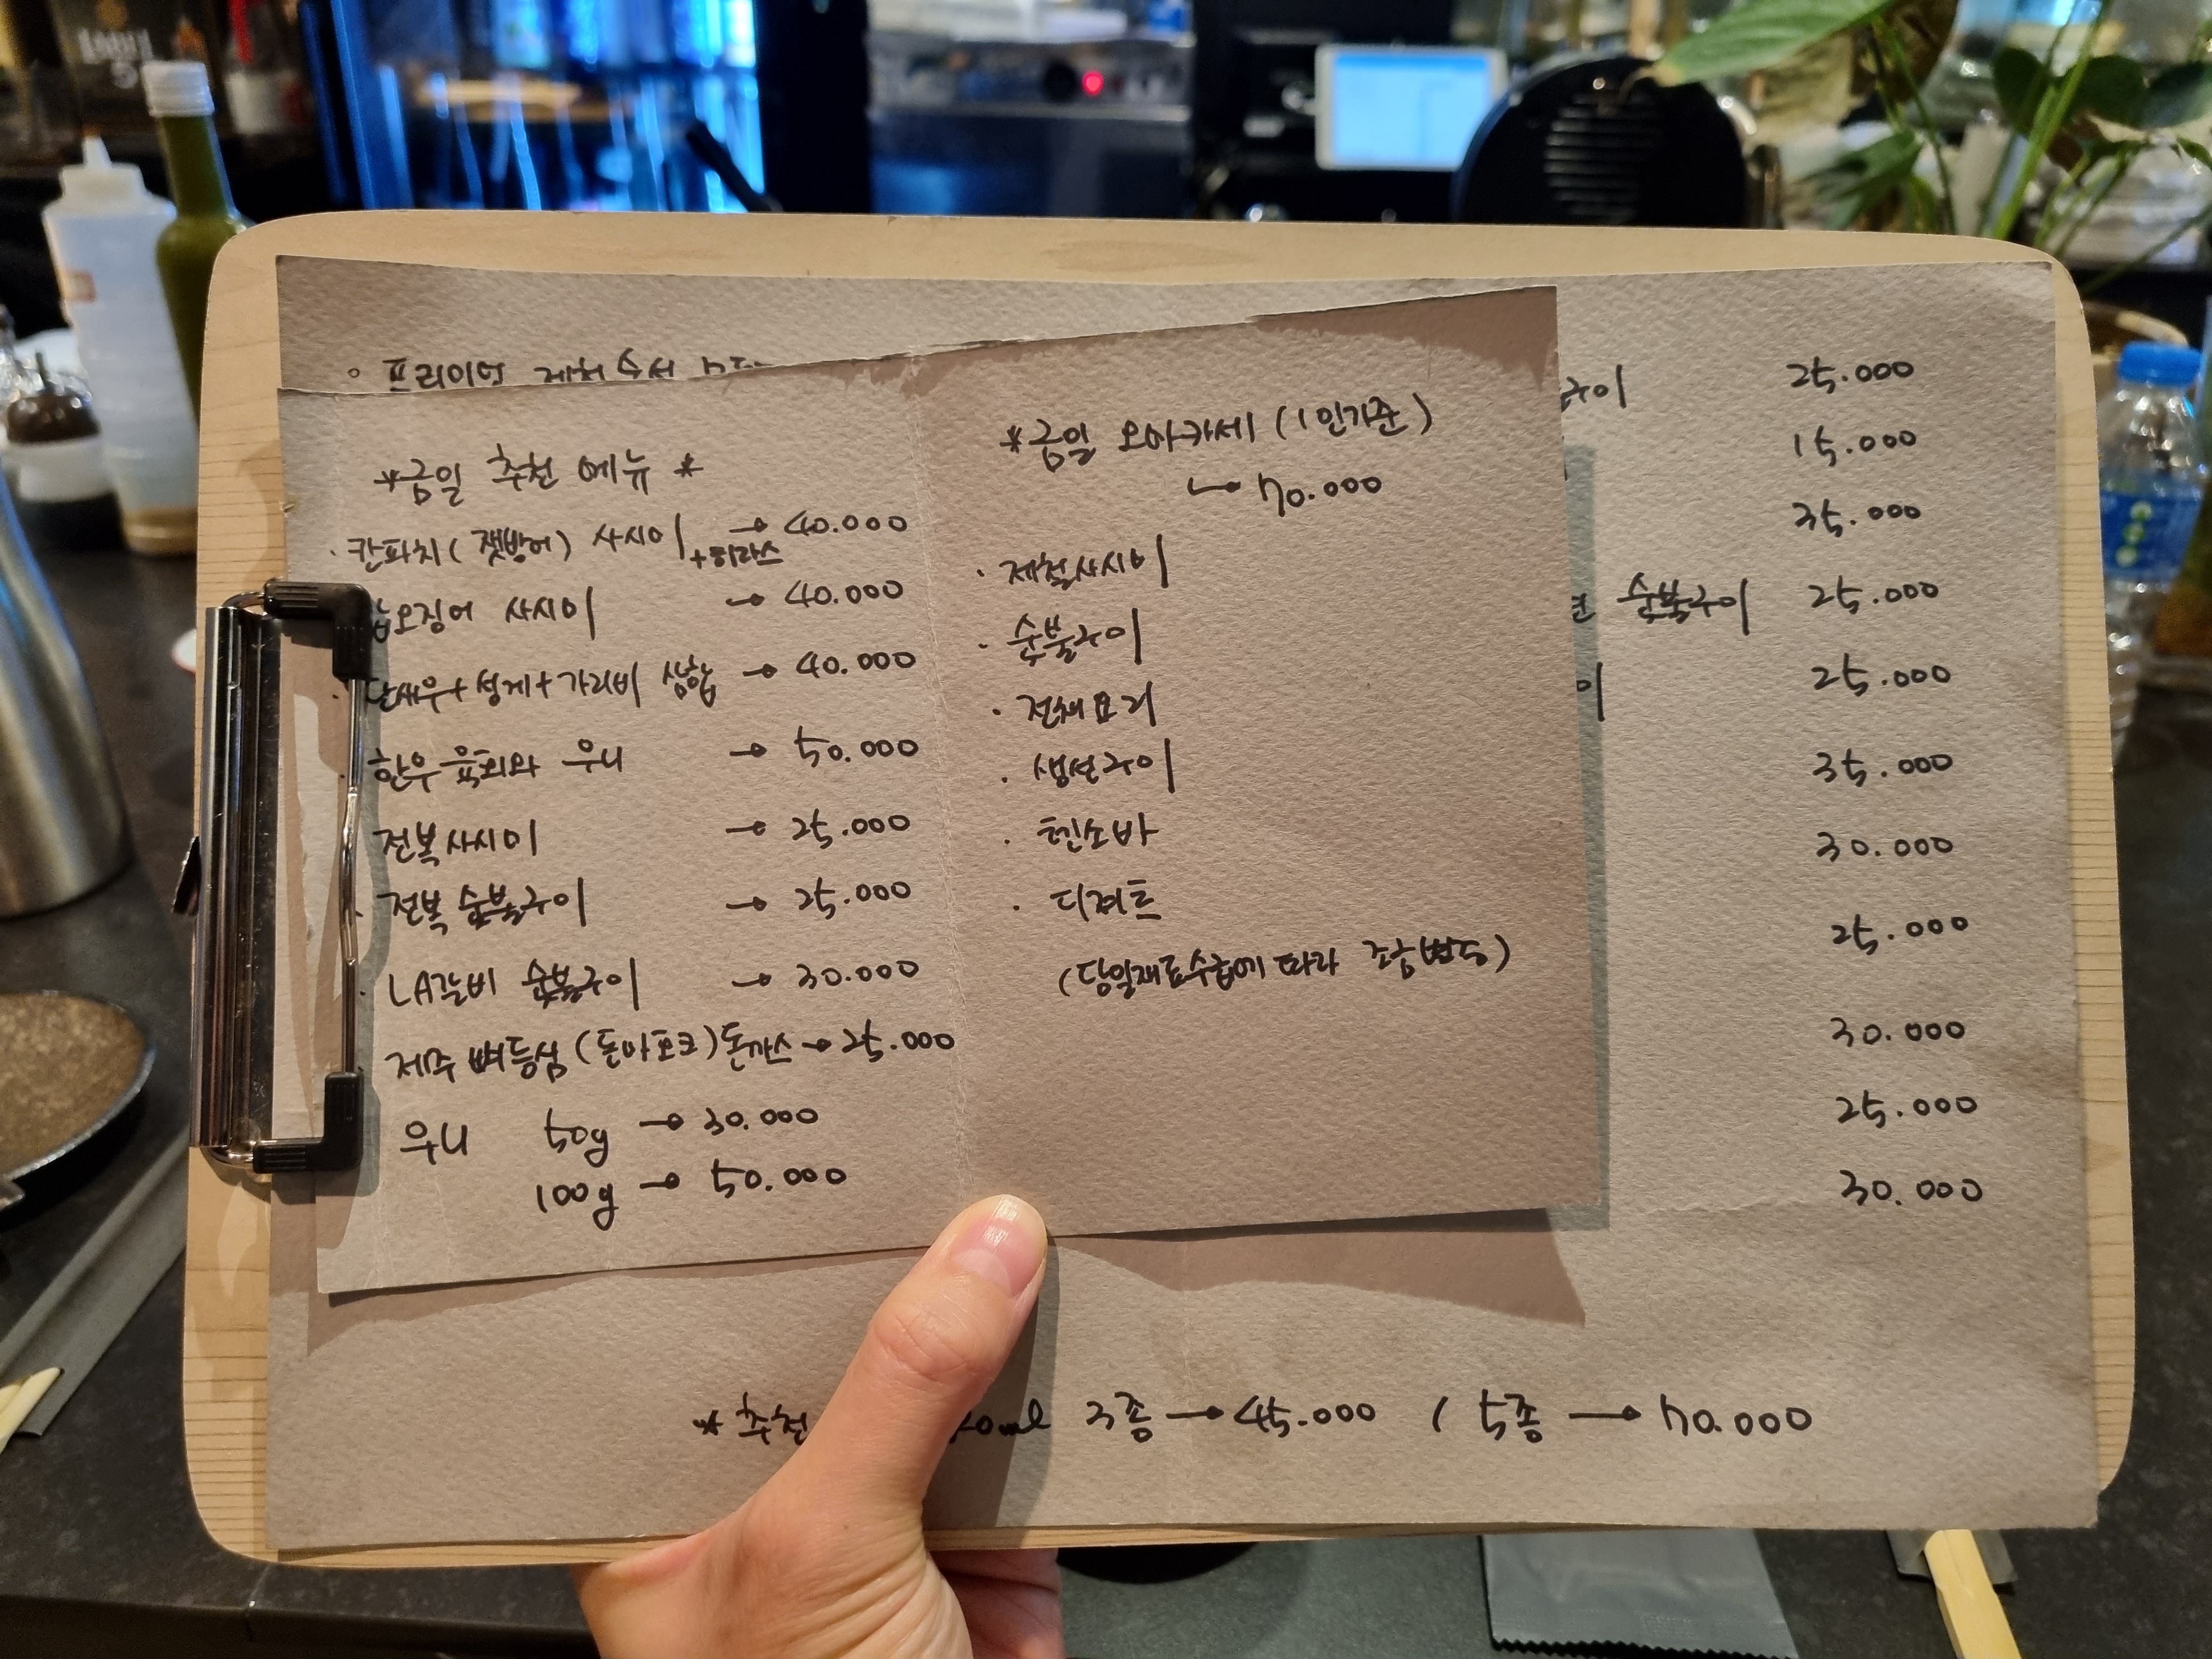 *금일 추천 메뉴*
· 칸파치(잿방어) 사시미 +히라스 → 40.000
오징어 사시미 → 40.000
· 단새우+성게+가리비 삼합 → 40.000
· 한우육회와 우니 → 50.000
전복사시미 → 25.000
· 전복 숯불구이 → 25.000
· LA갈비 숯불구이 → 30.000
제주 뼈등심(돈마포크)돈까스 → 25.000
우니 50g → 30.000
100g → 50.000
*금일 오마카세 (1인기준)
↳ 70.000
· 제철사시미
· 숯불구이
· 전채요리
· 생선구이
· 텐소바
· 디저트
(당일재료수급에 따라 조합변동)
◦ 프리미엄
구이 25.000
15.000
35.000
숯불구이 25.000
이 25.000
35.000
30.000
25.000
30.000
25.000
30.000
* 추천 ml 3종 → 45.000 / 5종 → 70.000